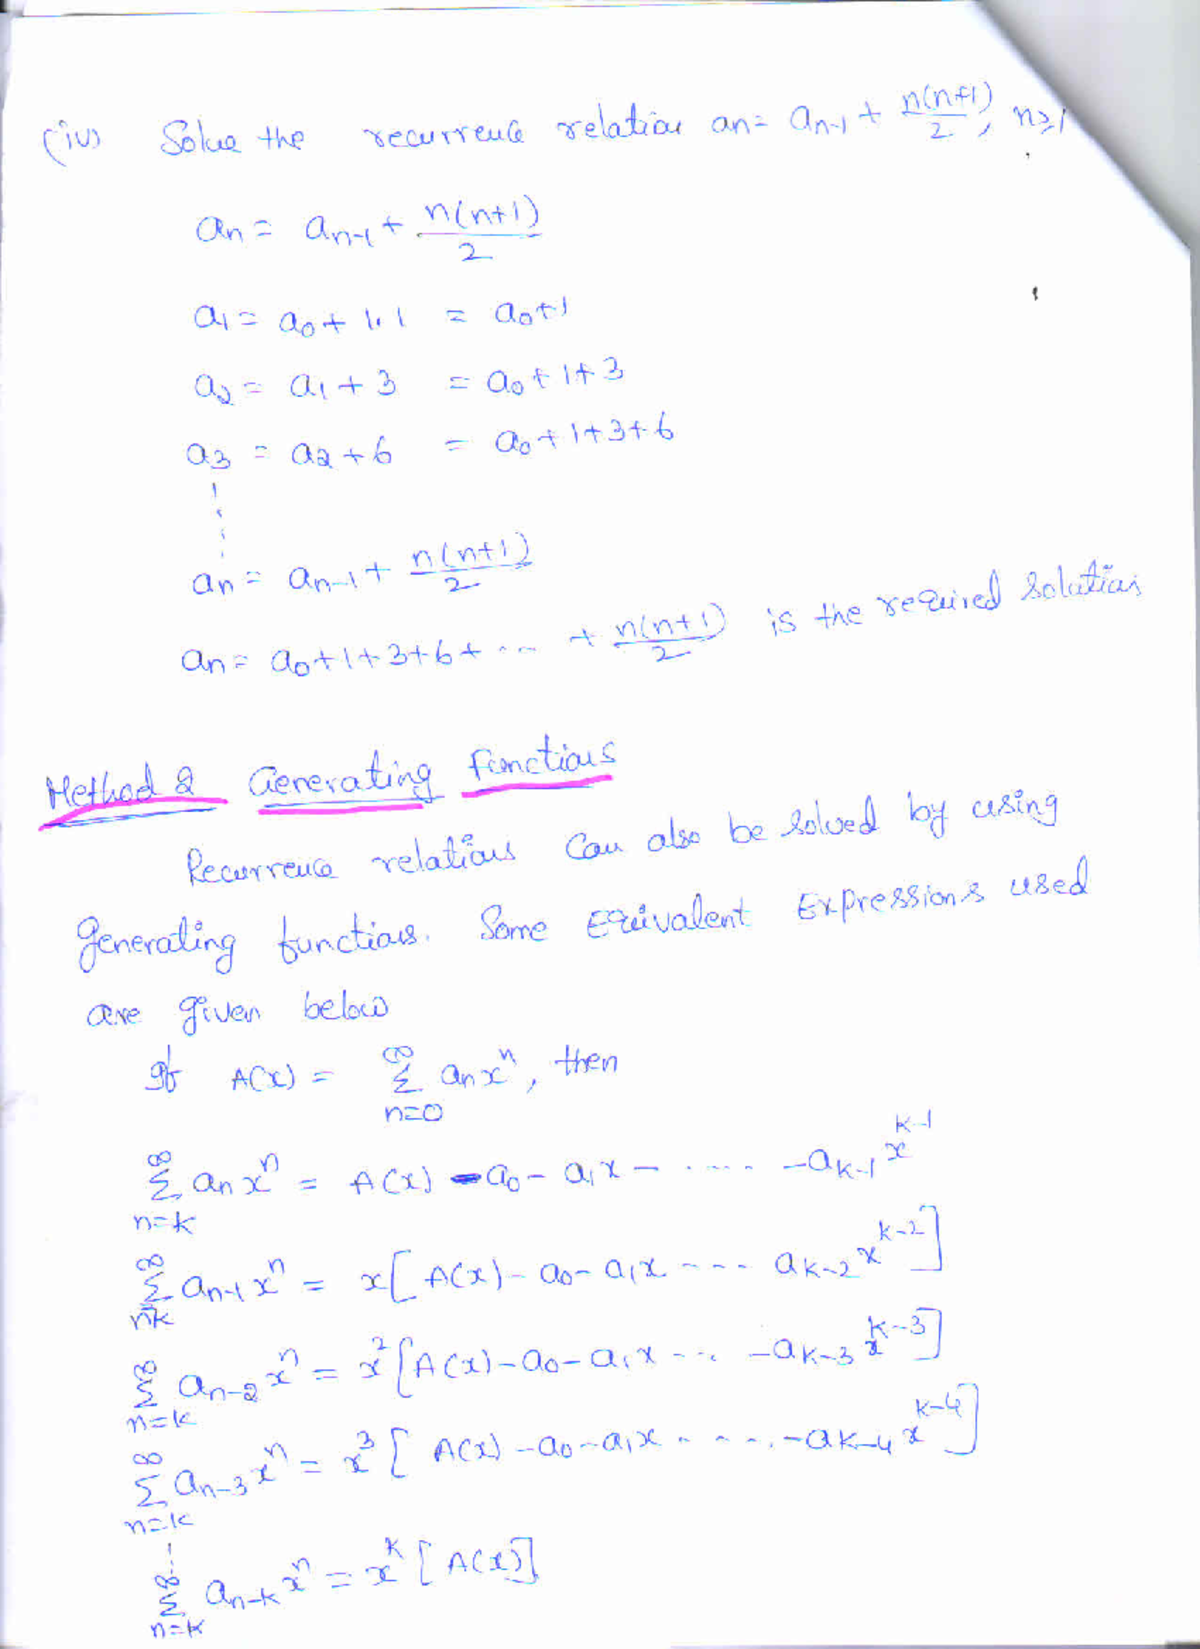 (iv) Solve the recurrence relation an = an-1 + n(n+1)/2, n≥1
an = an-1 + n(n+1)/2
a1 = a0 + 1.1 = a0+1
a2 = a1 + 3 = a0 + 1 + 3
a3 = a2 + 6 = a0 + 1 + 3 + 6
an = an-1 + n(n+1)/2
an = a0 + 1 + 3 + 6 + ... + n(n+1)/2 is the required solution
Method 2 Generating Functions
Recurrence relations can also be solved by using
generating functions. Some Equivalent Expressions used
are given below
If A(x) = ∞Σn=0 an x^n, then
∞Σn=k an x^n = A(x) - a0 - a1x - ..... - ak-1 x^k-1
∞Σn=k an-1 x^n = x[A(x) - a0 - a1x - - - - ak-2 x^k-2]
∞Σn=k an-2 x^n = x^2[A(x) - a0 - a1x - ... - ak-3 x^k-3]
∞Σn=k an-3 x^n = x^3[A(x) - a0 - a1x - ..... - ak-4 x^k-4]
∞Σn=k an-k x^n = x^k[A(x)]